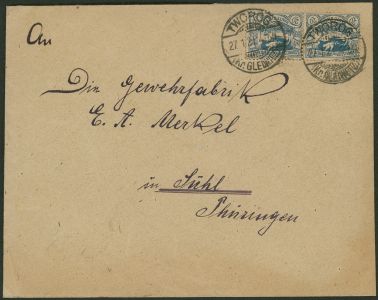 TWOROG
27.1.21
(Kr. GLEIWITZ)
TWOROG
(Kr. GLEIWITZ)
An
Die Gewehrfabrik
E. A. Merkel
in Suhl
Thüringen